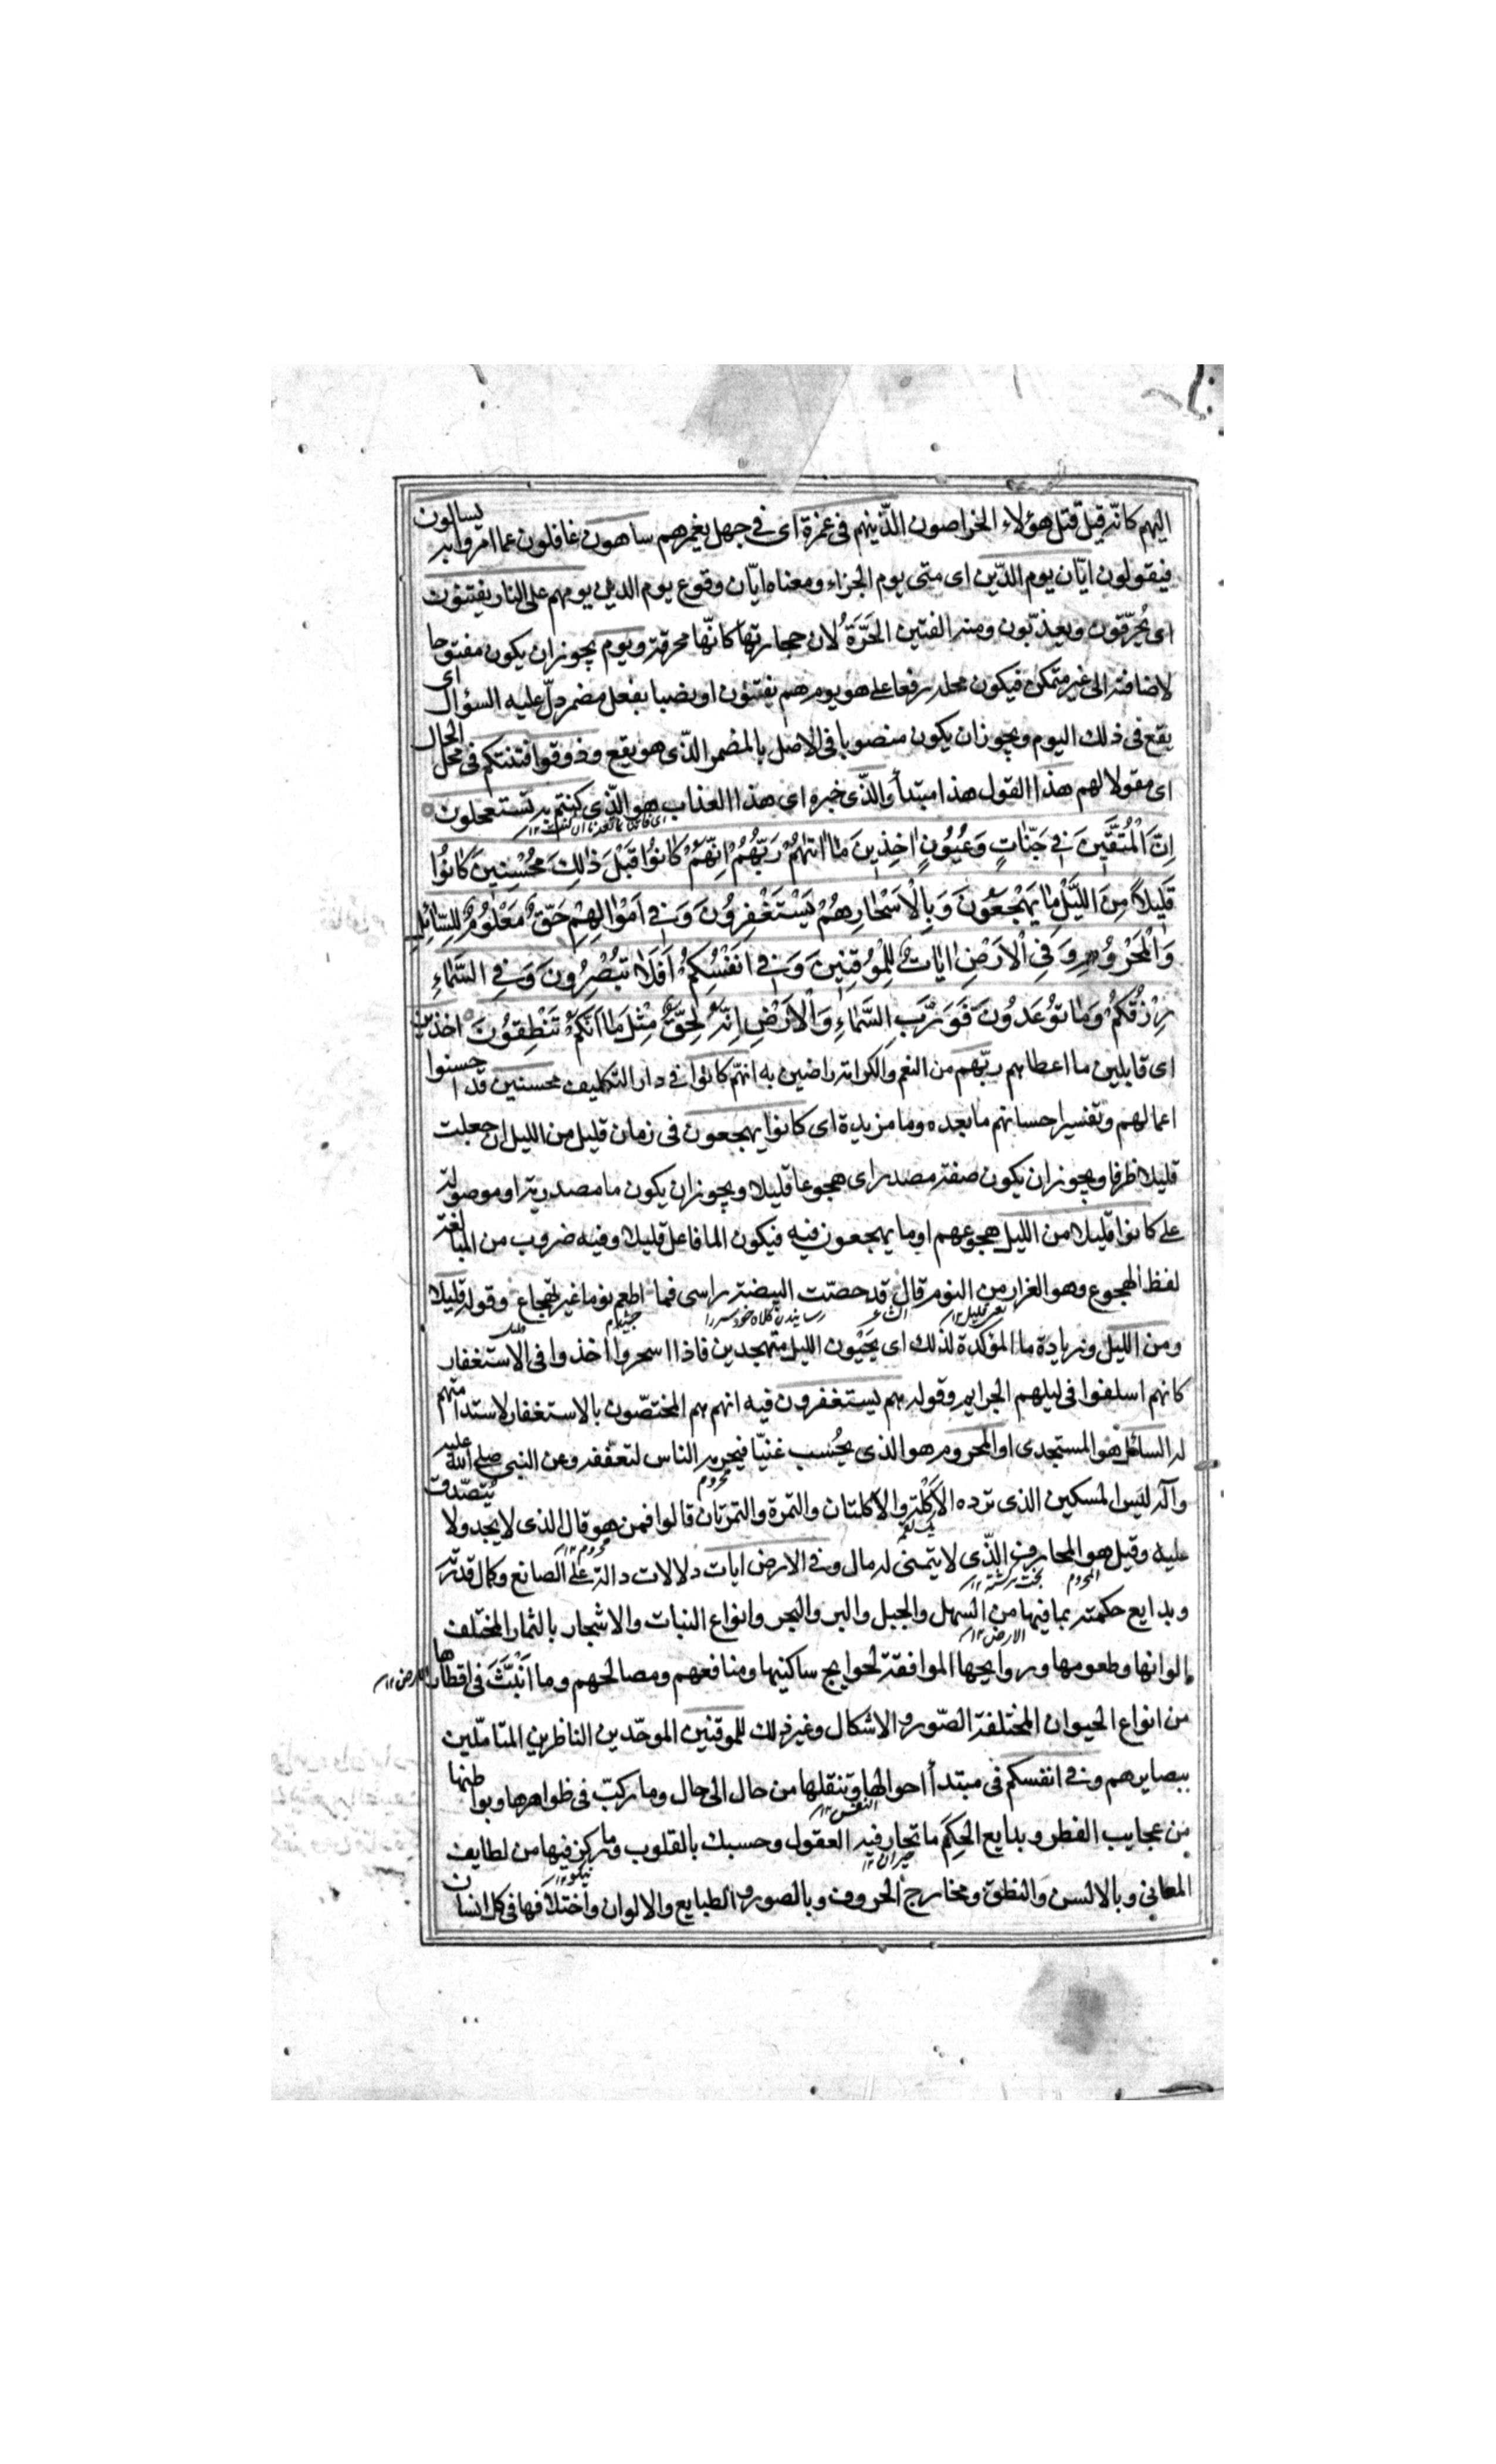 اليهم كانه قيل قتل هؤلاء الخراصون الذينهم فى غمرة اى فى جهل يغمرهم ساهون غافلون عما امروا به يسالون
فيقولون ايّان يوم الدّين اى متى يوم الجزاء ومعناه ايّان وقوع يوم الدين يومهم على النار يفتنون
اى يُحرّقون ويعذبّون ومنه الفتين الحَرَّةُ لان حجارتها كانّها محرقة ويوم يجوز ان يكون مفتوحا
لاضافته الى غير متمكن فيكون محله رفعا على هو يوم هم يفتنون او نصبا بفعل مضمر دلّ عليه السؤال اى
يقع فى ذلك اليوم ويجوز ان يكون منصوبا فى الاصل بالمضمر الذّى هو يقع وذوقوا فتنتكم فى محل الحال
اى مقولا لهم هذا القول هذا مبتدأ والذّى خبره اى هذا العذاب هو الذّى كنتم به تستعجلون
اِنَّ الْمُتَّقينَ فى جَنّاتٍ وَعُيُونٍ اخِذينَ ما اتيهُمْ رَبُّهُمْ اِنَّهُمْ كانُوا قَبْلَ ذلِكَ مُحْسِنينَ كانُوا
قَليلاً مِنَ اللَّيْلِ ما يَهْجَعُونَ وَبِالْاَسْحارِ هُمْ يَسْتَغْفِرُونَ وَفى اَمْوالِهِمْ حَقٌّ مَعْلُومٌ لِلسّائِلِ
وَالْمَحْرُومِ وَفِى الْاَرْضِ اياتٌ لِلْمُوقِنينَ وَفى اَنْفُسِكُمْ اَفَلا تُبْصِرُونَ وَفِى السَّماءِ
رِزْقُكُمْ وَما تُوعَدُونَ فَوَرَبِّ السَّماءِ وَالْاَرْضِ اِنَّهُ لَحَقٌّ مِثْلَ ما اَنَّكُمْ تَنْطِقُونَ اخذين
اى قابلين ما اعطاهم ربّهم من النعم والكرامة راضين به انهّم كانوا فى دار التكليف محسنين قد احسنوا
اعمالهم وتفسير احسانهم ما بعده وما مزيدة اى كانوا يهجعون فى زمان قليل من الليل ان جعلت
قليلا ظرفا ويجوز ان يكون صفة مصدر اى هجوعا قليلا ويجوز ان يكون ما مصدرية او موصولة
على كانوا قليلا من الليل هجوعهم او ما يهجعون فيه فيكون الما فاعل قليلا وفيه ضروب من المبالغة
لفظ الهجوع وهو الغرار من النوم قال قد حصّت البيضة راسى فما اطعم نوما غير تهجاع وقوله قليلا
ومن الليل وزيادة ما المؤكدة لذلك اى يحْيُون الليل متهجدين فاذا اسحروا اخذوا فى الاستغفار
كانهم اسلفوا فى ليلهم الجرايم وقوله هم يستغفرون فيه انهم هم المختصّون بالاستغفار لاستدامتهم
له السائل هو المستجدى او المحروم هو الذى يحُسب غنيّا فيحرمه الناس لتعفّفه وعن النبى صلى الله عليه
وآله ليس المسكين الذى ترده الاُكْلة والاكلتان والتمرة والتمرتان قالوا فمن هو قال الذى لا يجد ولا يُتصّدق
عليه وقيل هو المحارف الذّى لا يتمنى له مال وفى الارض ايات دلالات دالة على الصانع وكمال قدرته
وبدايع حكمته بما فيها من السهل والجبل والبر والبحر وانواع النبات والاشجار بالثمار المختلف
الوانها وطعومها وروايحها الموافقة لحوايج ساكنيها ومنافعهم ومصالحهم وما اَنْبَثَّ فى اقطارها
من انواع الحيوان المختلفة الصّور والاشكال وغير ذلك للموقنين الموحّدين الناظرين المتاملّين
ببصايرهم وفى انفسكم فى مبتدأ احوالها وتنقلها من حال الى حال وما ركبّ فى ظواهرها وبواطنها
من عجايب الفطر وبدايع الحِكَم ما تحار فيه العقول وحسبك بالقلوب وما ركز فيها من لطايف
المعانى وبالالسن والنطق ومخارج الحروف وبالصور والطبايع والالوان واختلافها فى كل انسان